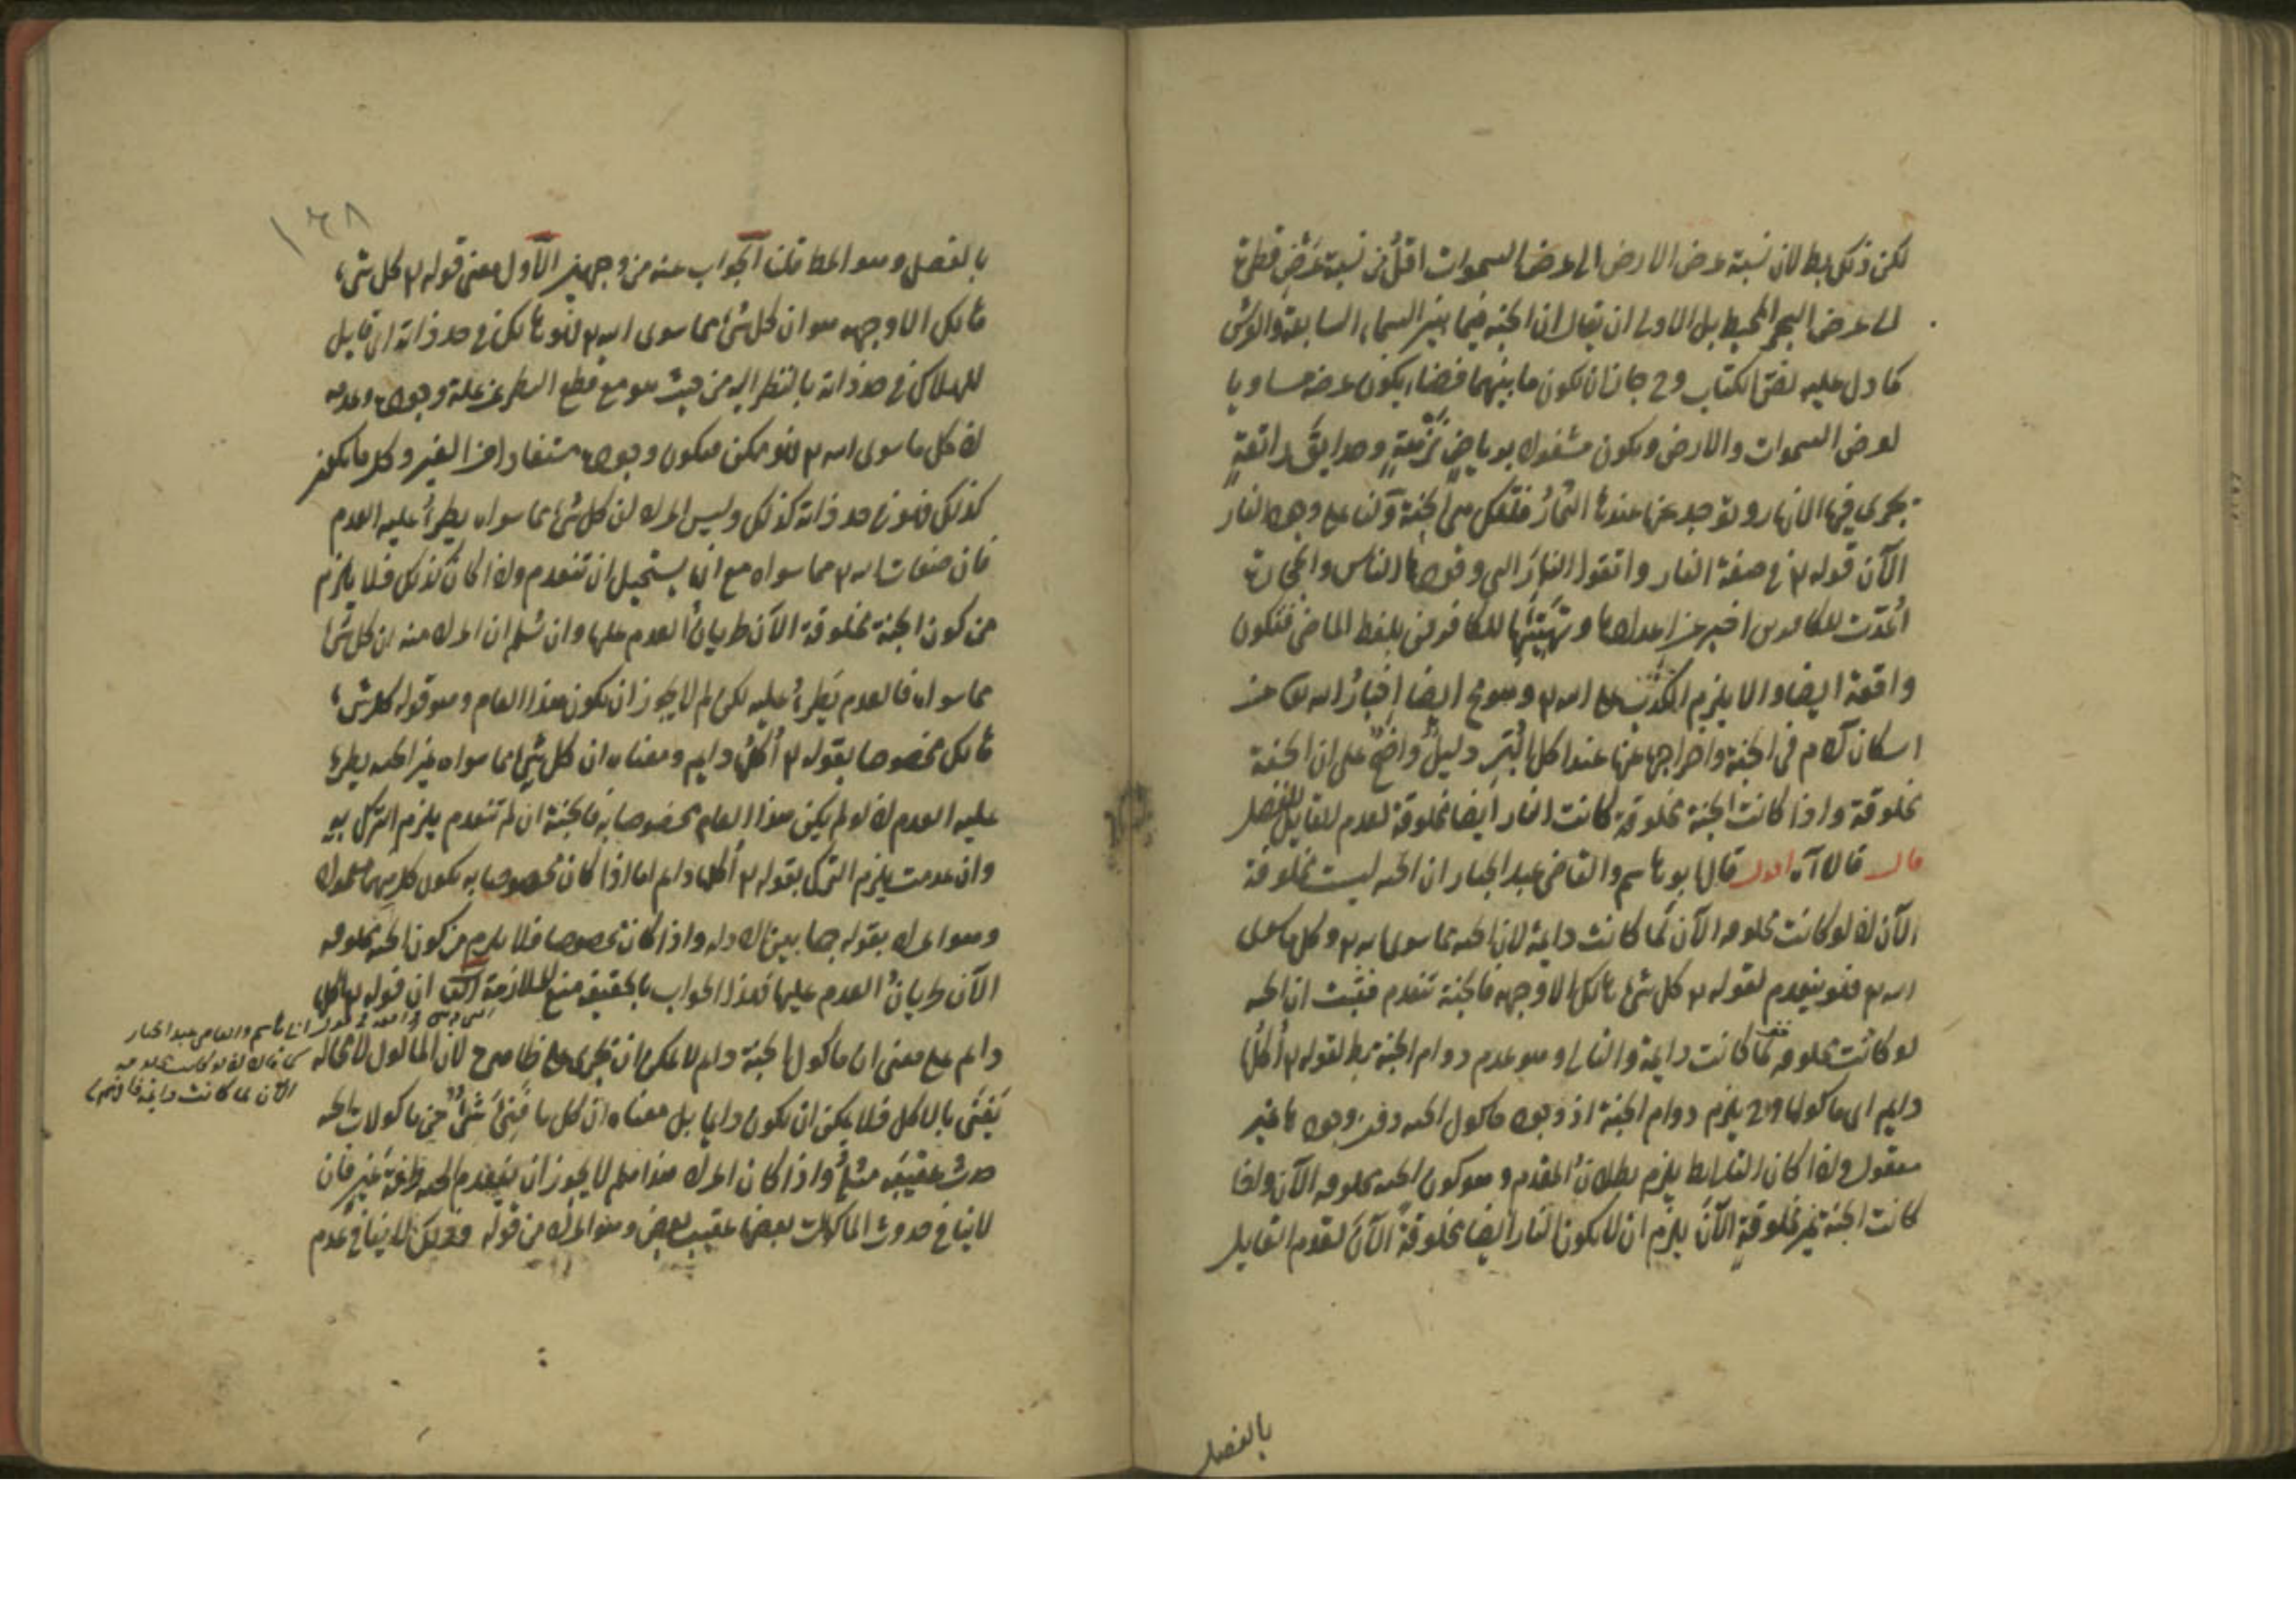 لكن ذلك بط لان نسبة عرض الارض الى عرض السموات اقل من نسبة عرض قطرة
الى عرض البحر المحيط بل الاولى ان يقال ان الجنة فيما بين السماء السابعة والعرش
كما دل عليه نص الكتاب وح جاز ان تكون ما بينهما فضاء يكون عرضه مساويا
لعرض السموات والارض ويكون مشغولا برياض نزهة وحدايق رائقة
تجرى فيها الانهار وتوجد عندها الثمار فتلك هى الجنة ولنا على وجود النار
الآن قوله تع فى صفة النار واتقوا النار التى وقودها الناس والحجارة
اعدت للكافرين اخبر عن اعدادها وتهيئتها للكافرين بلفظ الماضى فتكون
واقعة ايضا والا يلزم الكذب على الله تع وهو مح ايضا اخبار الله تع عن
اسكان آدم فى الجنة واخراجها عنها عند اكل البر دليل واضح على ان الجنة
مخلوقة واذا كانت الجنة مخلوقة كانت النار ايضا مخلوقة لعدم القايل بالفصل
قال قالا آه اقول قال ابو هاشم والقاضى عبد الجبار ان الجنة ليست مخلوقة
الآن اذ لو كانت مخلوقة الآن لما كانت دايمة لان الجنة مما سوى الله تع وكل ما سوى
الله تع فهو ينعدم لقوله تع كل شئ هالك الا وجهه فالجنة تنعدم فثبت ان الجنة
لو كانت مخلوقة لما كانت دايمة والتالى وهو عدم دوام الجنة بط لقوله تع اكلها
دايم اى ماكولها وح يلزم دوام الجنة اذ وجود ماكول الجنة دون وجودها غير
معقول واذا كان التالى بط يلزم بطلان المقدم وهو كون الجنة مخلوقة الآن واذا
كانت الجنة غير مخلوقة الآن يلزم ان لا يكون النار ايضا مخلوقة الآن لعدم القايل
بالفصل
١٦٨
بالفصل وهو المط قلنا الجواب عنه من وجهين الاول معنى قوله تع كل شئ
هالك الا وجهه هو ان كل شئ مما سوى الله تع فهو هالك فى حد ذاته اى قابل
للهلاك فى حد ذاته بالنظر اليه من حيث هو مع قطع النظر عن علة وجوده وعدمه
اذ كل ما سوى الله تع فهو ممكن فيكون وجوده مستفادا من الغير وكل ما يكون
كذلك فهو فى حد ذاته كذلك وليس المراد ان كل شئ مما سواه يطرء عليه العدم
فان صفات الله تع مما سواه مع انه يستحيل ان تنعدم واذا كان كذلك فلا يلزم
من كون الجنة مخلوقة الآن طريان العدم عليها وان سلم ان المراد منه ان كل شئ
مما سواه فالعدم يطرء عليه لكن لم لا يجوز ان يكون هذا العام وهو قوله كل شئ
هالك مخصوصا بقوله تع اكلها دايم ومعناه ان كل شئ مما سواه غير الجنة يطرء
عليه العدم اذ لو لم يكن هذا العام مخصوصا به فالجنة ان لم تنعدم يلزم الترك به
وان عدمت يلزم الترك بقوله تع اكلها دايم اما اذا كان مخصوصا به يكون كل منهما معمولا
وهو المراد بقوله جمعا بين الادلة واذا كان مخصوصا فلا يلزم من كون الجنة مخلوقة
الآن طريان العدم عليها فهذا الجواب بالحقيقة منع للملازمة الثانى ان قوله تع اكلها
دايم على معنى ان ماكول الجنة دايم لا يمكن ان يجرى على ظاهره لان الماكول لا محالة
يفنى بالاكل فلا يمكن ان يكون دايما بل معناه ان كل ما فنى شئ من ماكولات الجنة
حدث عقيبه مثله واذا كان المراد هذا فلم لا يجوز ان ينعدم الجنة طرفة عين فان
لا ينافى حدوث الماكولات بعضها عقيب بعض وهو المراد من قوله وذلك لا ينافى عدم
ابى هاشم والقاضى عبد الجبار
كما قالا اذ لو كانت مخلوقة
الآن لما كانت دايمة فافهم